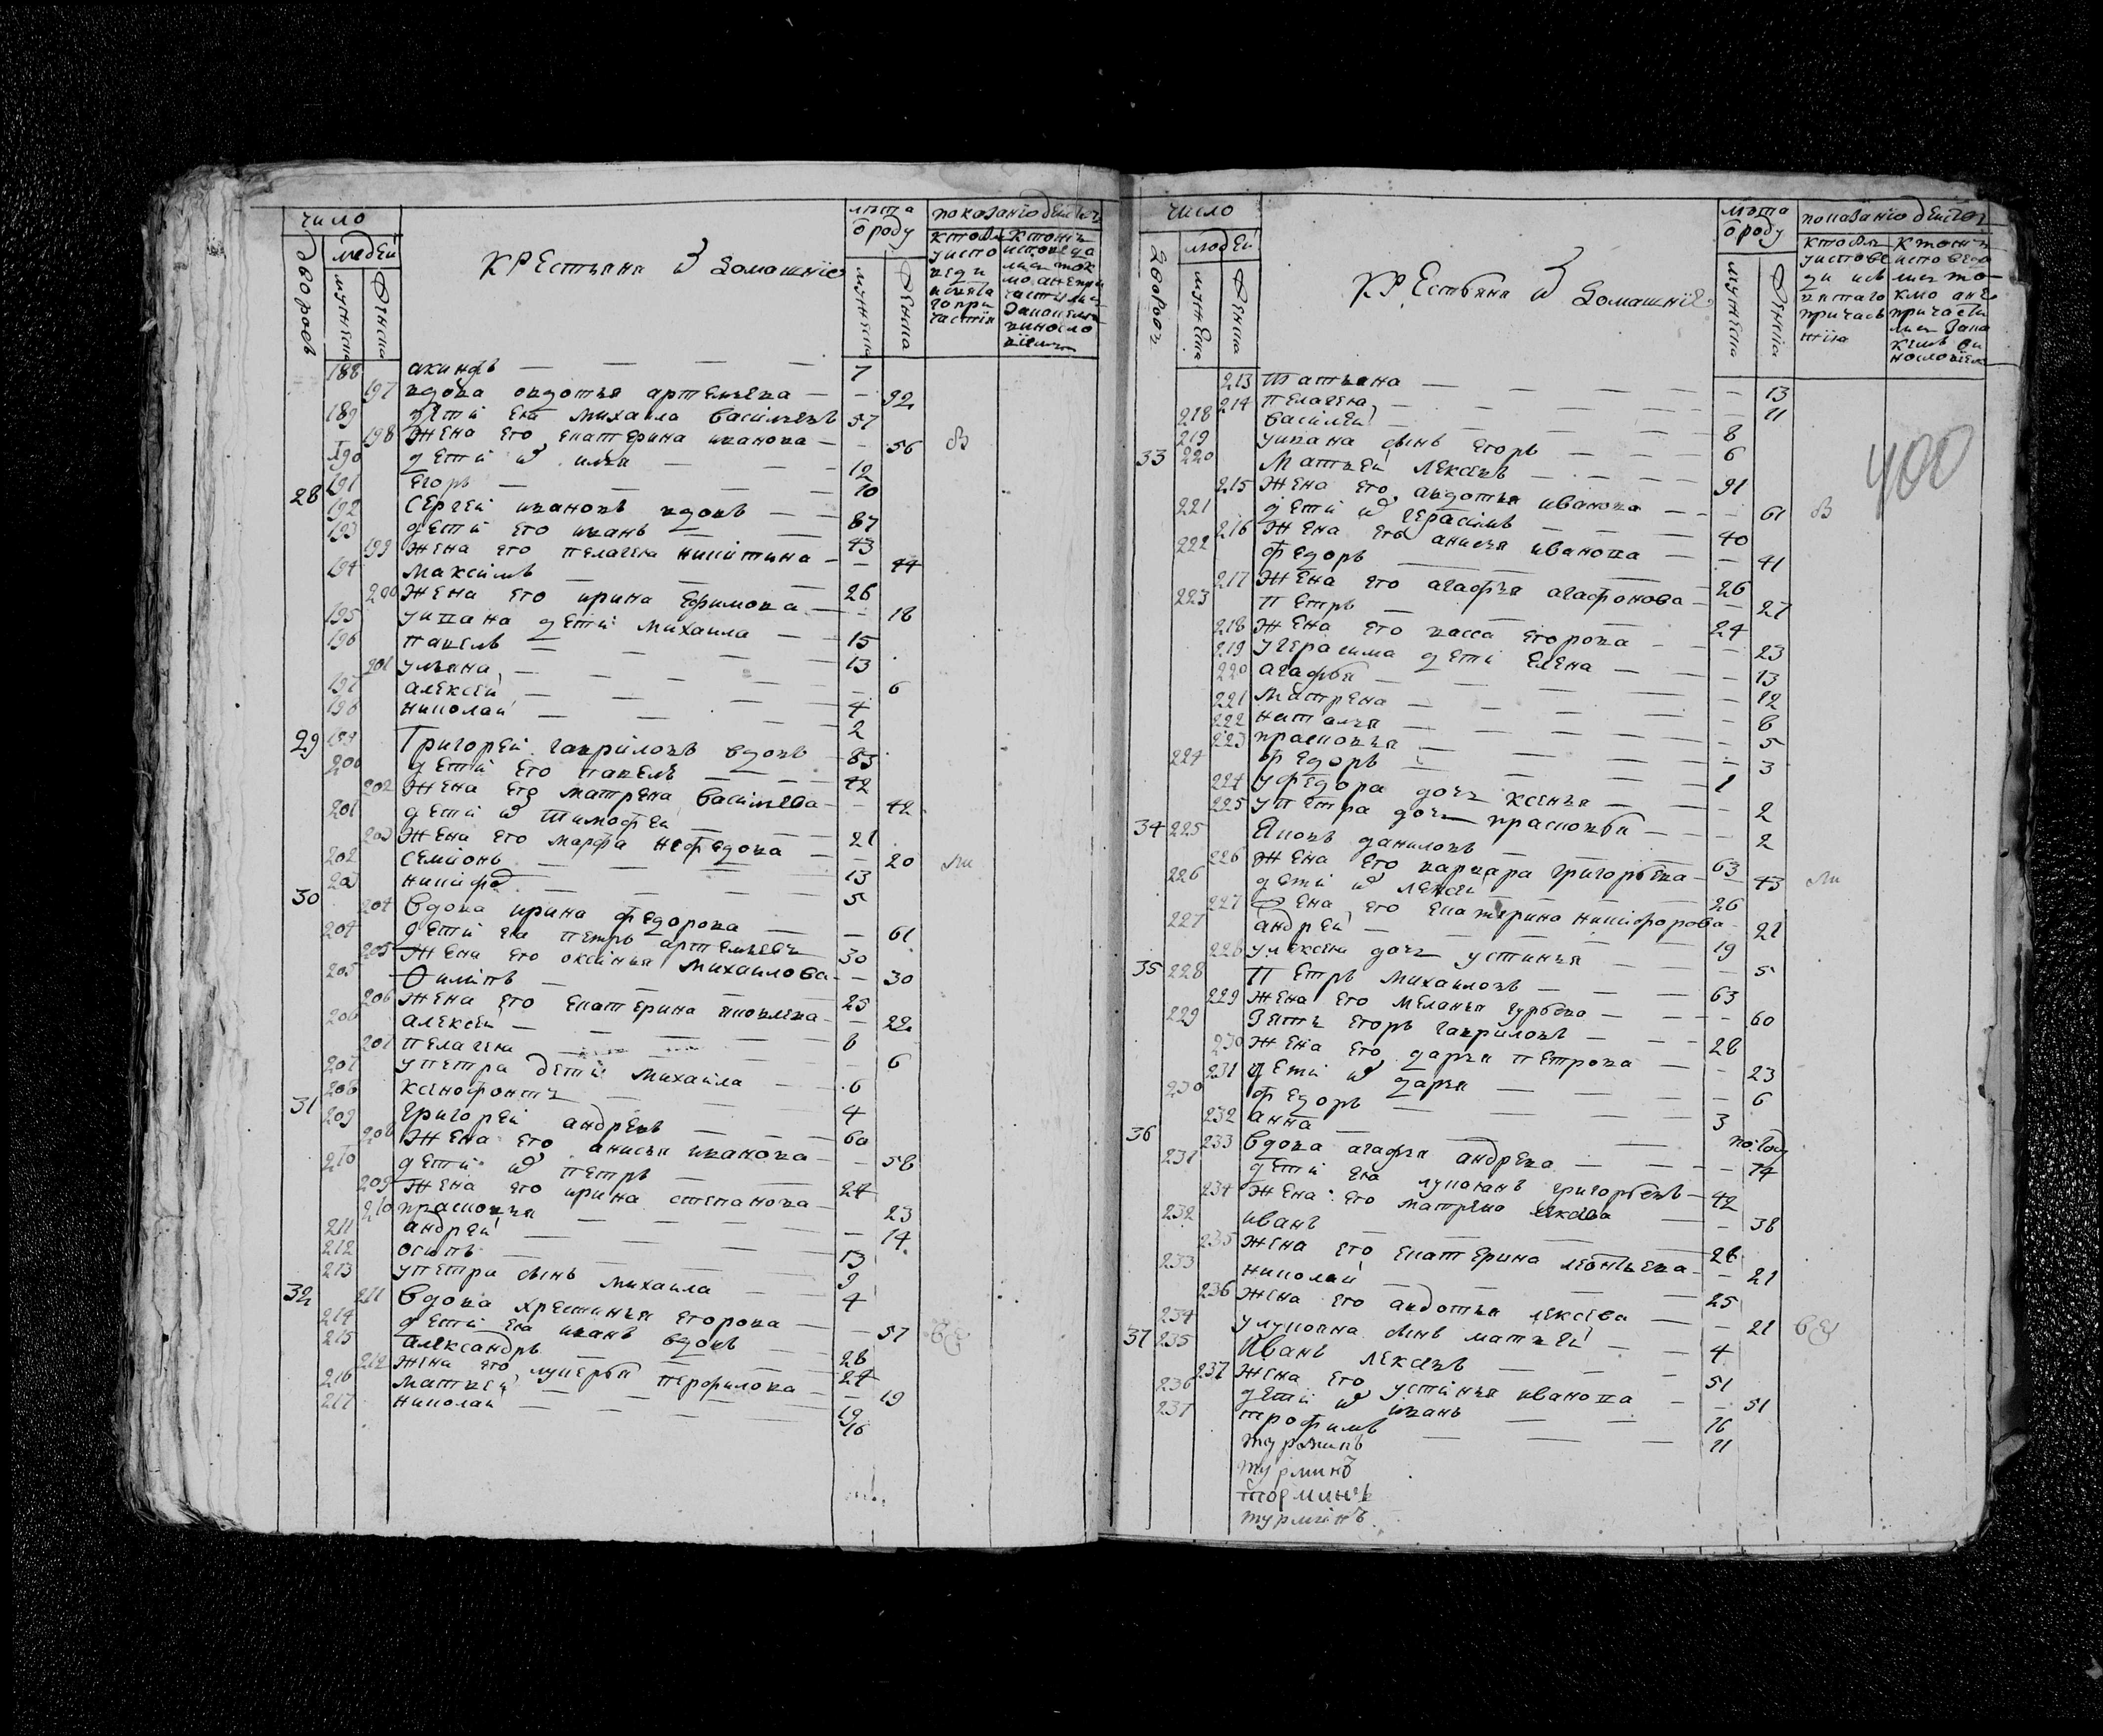 число
людей
дворовъ
мужеска
женска
крестьяна и домашнїе
лѣта
ѿроду
мужеска
женска
показанїо дѣиств
188 акинфъ — — — 7
197 вдова овдотья артемьева — — 92
189 дѣти ея михаила васильевъ 57
198 жена его екатерина иванова — — 56
190 дѣти их илья — — 12
191 егоръ — — — 10
28 192 сергей ивановъ вдовъ — — 87
193 дѣти его иванъ — 43
199 жена его пелагея никитина — — 44
194 максимъ — — — 26
200 жена его ирина ефимова — — 18
195 у ивана дѣти михаила — — 15
196 павелъ — — — 13
201 ульяна — — — — 6
197 алексей — — — 4
198 николай — — — 2
29 199 григорей гавриловъ вдовъ — 83
200 дѣти его павелъ — — 42
202 жена его матрена васильева — — 42
201 дѣти их тимофей — — 21
203 жена его марфа нефедова — — 20
202 семионъ — — — 13
203 никифо — — — 5
30 204 вдова ирина федорова — — 61
204 дѣти ея петръ артемьевъ 30
205 жена его оксинья михаилова — — 30
205 филипъ — — — 25
206 жена его екатерина яковлева — — 22
206 алексей — — — 8
207 пелагея — — — 6
207 у петра дѣти михаила — — 6
208 ксенофонтъ — — 4
31 209 григорей андреевъ — — 60
208 жена его анисья иванова — — 58
210 дѣти их петръ — — 24
209 жена его ирина степанова — 23
210 прасковья — — — 14
211 андрей — — — 13
212 осипъ — — — 9
213 у петра сынъ михаила — — 4
32 211 вдова хрестинья егорова — — 57
214 дѣти ея иванъ вдовъ — 28
215 александръ — — — 24
212 жена его лукерья перфилова — — 19
216 матвей — — — 19
217 николай — — — 16
число
людей
дворовъ
мужеска
женска
крестьяна и домашнїе
лѣта
ѿроду
мужеска
женска
показанїо дѣиств
400
213 татьяна — — — — 13
214 пелагея — — — — 11
218 василей — — — 8
219 у ивана сынъ егоръ — — 6
33 220 матвей лексевъ — — 91
215 жена его авдотья иванова — — 61
221 дѣти их герасимъ — — 40
216 жена его анисья иванова — — 41
222 федоръ — — — 26
217 жена его агафья агафонова — — 27
223 петръ — — — 24
218 жена его васса егорова — — 23
219 у герасима дѣти елена — — 13
220 агафья — — — — 12
221 матрена — — — — 8
222 наталья — — — — 5
223 прасковья — — — — 3
224 федоръ — — — 1
224 у федора дочь ксенья — — 2
225 у петра дочь прасковья — — 2
34 225 яковъ даниловъ — — 63
226 жена его варвара григорьева — — 43
226 дѣти их лексей — — 26
227 жена его екатерина никифорова — 21
227 андрей — — — 19
228 у лексея дочь устинья — — 5
35 228 петръ михаиловъ — — 63
229 жена его меланья гурьева — — 60
229 зять егоръ гавриловъ — — 28
230 жена его дарья петрова — — 23
231 дѣти их дарья — — — 6
230 федоръ — — — 3
232 анна — — — по:год
36 233 вдова агафья андреева — — 74
231 дѣти ея лукоянъ григорьевъ — 42
234 жена его матрена лексева — — 38
232 иванъ — — — 28
235 жена его екатерина леонтьева — — 21
233 николай — — — 25
236 жена его авдотья лексева — — 21
234 у лукояна сынъ матвей — — 4
37 235 иванъ лексевъ — — 51
237 жена его устинья иванова — — 51
236 дѣти их иванъ — — 16
237 трофимъ — — — 11
турминъ
турминъ
тюрминъ
турминъ